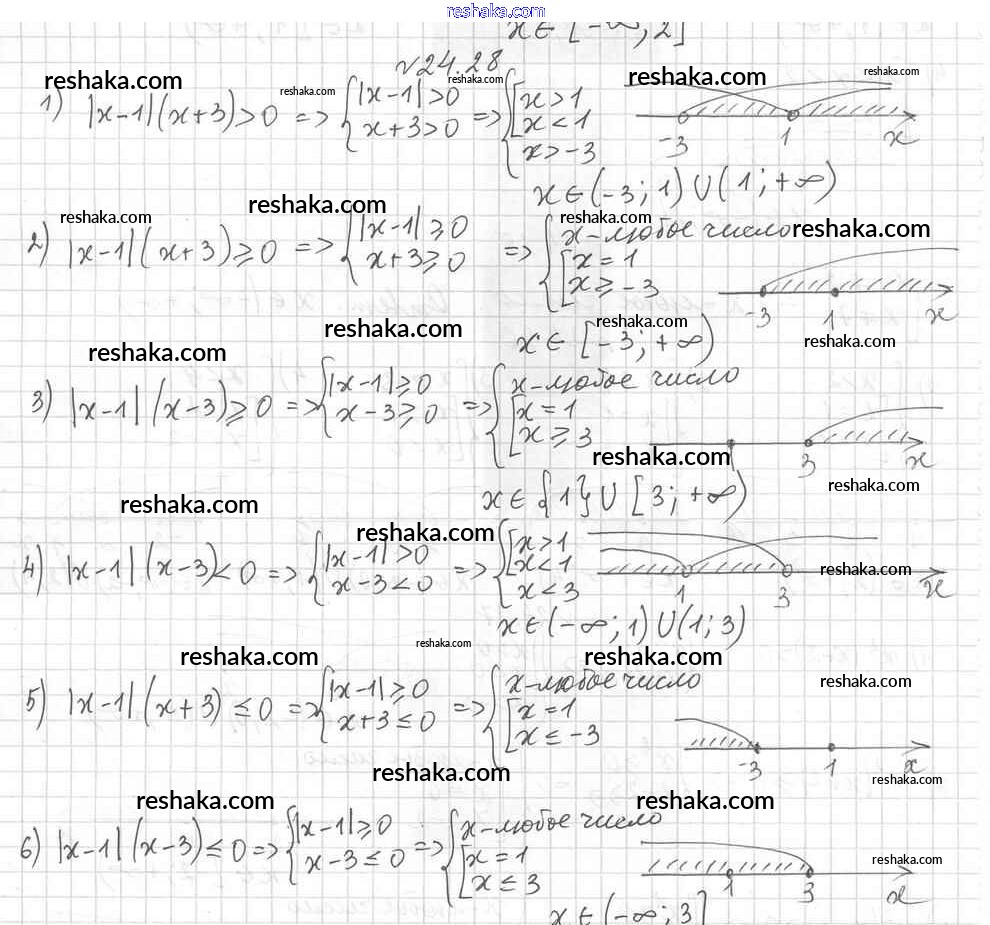 reshaka.com
x ∈ [-∞; 2]
√24.28
reshaka.com reshaka.com reshaka.com reshaka.com reshaka.com
1) |x-1|(x+3)>0 => { |x-1|>0 => { [ x>1
x+3>0 x<1
x>-3
-3 1 x
x ∈ (-3; 1) ∪ (1; +∞)
reshaka.com reshaka.com reshaka.com reshaka.com
2) |x-1|(x+3)≥0 => { |x-1|≥0 => { x-любое число
x+3≥0 [ x=1
x≥-3
-3 1 x
x ∈ [-3; +∞)
reshaka.com reshaka.com reshaka.com reshaka.com
3) |x-1|(x-3)≥0 => { |x-1|≥0 => { x-любое число
x-3≥0 [ x=1
x≥3
reshaka.com
3 x
x ∈ {1} ∪ [3; +∞)
reshaka.com reshaka.com reshaka.com
4) |x-1|(x-3)<0 => { |x-1|>0 => { [ x>1
x-3<0 x<1
x<3
reshaka.com
1 3 x
x ∈ (-∞; 1) ∪ (1; 3)
reshaka.com reshaka.com reshaka.com reshaka.com
5) |x-1|(x+3)≤0 => { |x-1|≥0 => { x-любое число
x+3≤0 [ x=1
x≤-3
-3 1 x
reshaka.com reshaka.com
reshaka.com reshaka.com
6) |x-1|(x-3)≤0 => { |x-1|≥0 => { x-любое число
x-3≤0 [ x=1
x≤3
reshaka.com
1 3 x
x ∈ (-∞; 3]